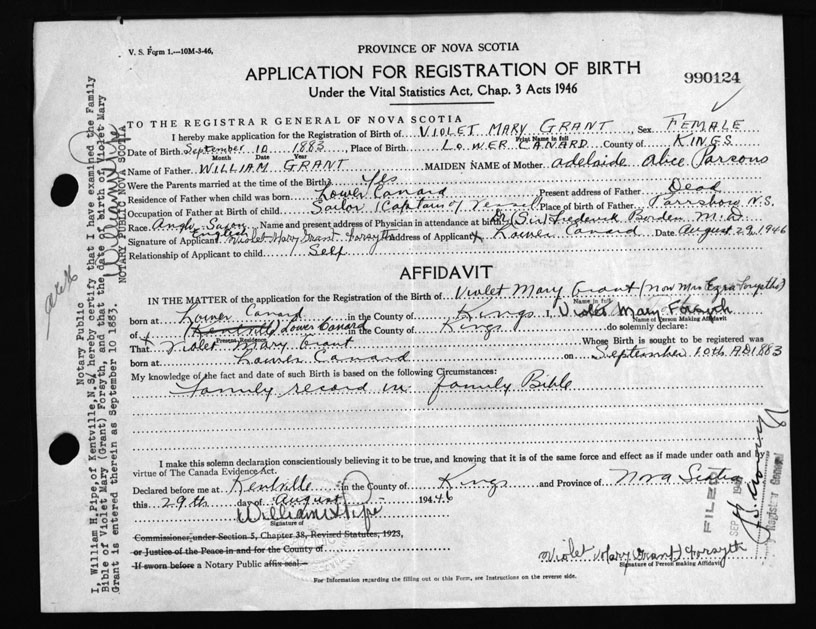 V. S. Form 1.—10M-3-46,
PROVINCE OF NOVA SCOTIA
APPLICATION FOR REGISTRATION OF BIRTH
990124
Under the Vital Statistics Act, Chap. 3 Acts 1946
TO THE REGISTRAR GENERAL OF NOVA SCOTIA
I hereby make application for the Registration of Birth of VIOLET MARY GRANT, Sex FEMALE
Print Name in full
Date of Birth September 10 1883, Place of Birth LOWER CANARD County of KINGS
Month Date Year
Name of Father WILLIAM GRANT MAIDEN NAME of Mother Adelaide Alice Parsons
Were the Parents married at the time of the Birth? Yes
Residence of Father when child was born Lower Canard Present address of Father Dead
Occupation of Father at Birth of child Sailor (Captain of Vessel) Place of birth of Father Parrsboro N.S.
Race Anglo-Saxon Name and present address of Physician in attendance at birth Dr (Sir) Frederick Borden M.D.
English
Signature of Applicant Violet Mary Grant Forsyth Address of Applicant Lower Canard Date August 29 1946
Relationship of Applicant to child Self
AFFIDAVIT
IN THE MATTER of the application for the Registration of the Birth of Violet Mary Grant (Now Mrs Ezra Forsythe)
Name in full
born at Lower Canard in the County of Kings I, Violet Mary Forsyth
Name of Person Making Affidavit
of (Kentville) Lower Canard in the County of Kings do solemnly declare:
Present Residence
That Violet Mary Grant Whose Birth is sought to be registered was
born at Lower Canard on September 10th AD1883
My knowledge of the fact and date of such Birth is based on the following Circumstances:
Family record in family Bible
I make this solemn declaration conscientiously believing it to be true, and knowing that it is of the same force and effect as if made under oath and by
virtue of The Canada Evidence Act.
Declared before me at Kentville in the County of Kings and Province of Nova Scotia
this 29th day of August 194446
William H Pipe
Signature of
Commissioner, under Section 5, Chapter 38, Revised Statutes, 1923,
or Justice of the Peace in and for the County of
If sworn before a Notary Public affix seal
Violet Mary (Grant) Forsyth
Signature of Person making Affidavit
For Information regarding the filling out of this Form, see Instructions on the reverse side.
I, William H. Pipe, of Kentville, N.S. hereby certify that I have examined the Family
Bible of Violet Mary (Grant) Forsyth, and that the date of birth of Violet Mary
Grant is entered therein as September 10 1883.
NOTARY PUBLIC NOVA SCOTIA
Notary Public
FILED
SEP
Registrar General